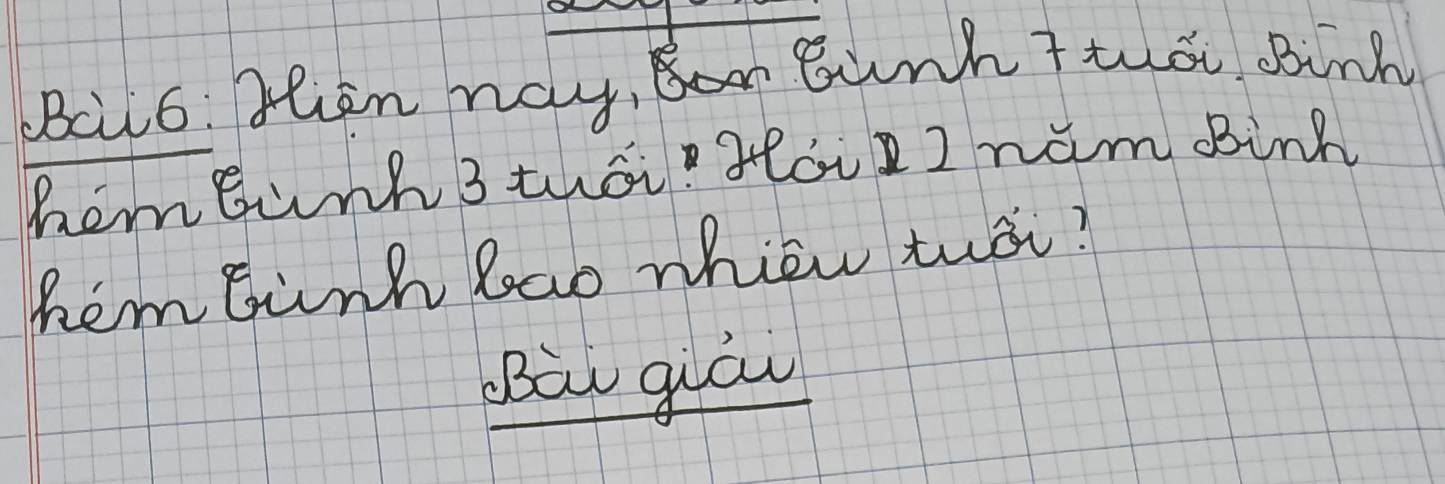 Bài 6: Hiện nay, Einh 7 tuổi. Bình
kém Einh 3 tuổi. Hỏi 2 năm Bình
kém Einh bao nhiêu tuổi?
Bài giải